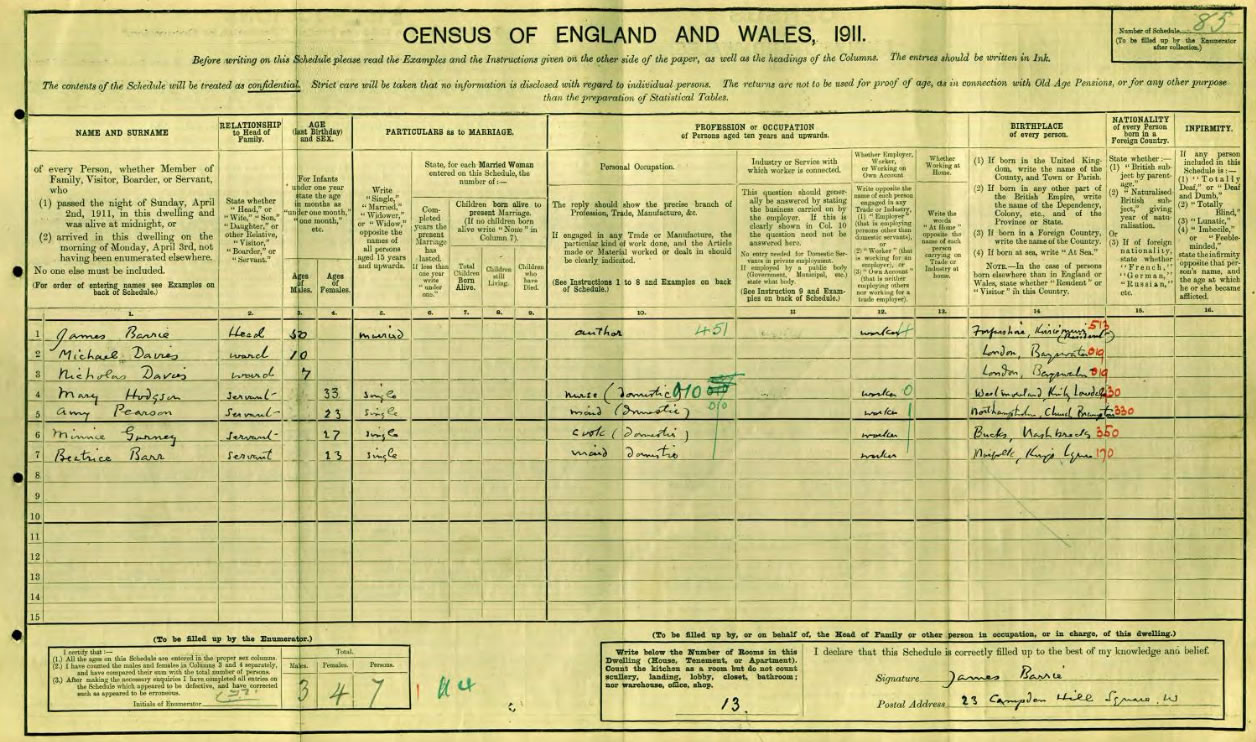 85
Number of Schedule
(To be filled up by the Enumerator
after collection.)
CENSUS OF ENGLAND AND WALES, 1911.
Before writing on this Schedule please read the Examples and the Instructions given on the other side of the paper, as well as the headings of the Columns. The entries should be written in Ink.
The contents of the Schedule will be treated as confidential. Strict care will be taken that no information is disclosed with regard to individual persons. The returns are not to be used for proof of age, as in connection with Old Age Pensions, or for any other purpose
than the preparation of Statistical Tables.
NAME AND SURNAME
of every Person, whether Member of
Family, Visitor, Boarder, or Servant,
who
(1) passed the night of Sunday, April
2nd, 1911, in this dwelling and
was alive at midnight, or
(2) arrived in this dwelling on the
morning of Monday, April 3rd, not
having been enumerated elsewhere.
No one else must be included.
(For order of entering names see Examples on
back of Schedule.)
RELATIONSHIP
to Head of
Family.
State whether
"Head," or
"Wife," "Son,"
"Daughter," or
other Relative,
"Visitor,"
"Boarder," or
"Servant."
AGE
(last Birthday)
and SEX.
For Infants
under one year
state the age
in months as
"under one month,"
"one month,"
etc.
Ages
of
Males.
Ages
of
Females.
PARTICULARS as to MARRIAGE.
Write
"Single,"
"Married,"
"Widower,"
or "Widow,"
opposite the
names of
all persons
aged 15 years
and upwards.
State, for each Married Woman
entered on this Schedule, the
number of:—
Com-
pleted
years the
present
Marriage
has
lasted.
If less than
one year
write
"under
one."
Children born alive to
present Marriage.
(If no children born
alive write "None" in
Column 7).
Total
Children
Born
Alive.
Children
still
Living.
Children
who
have
Died.
PROFESSION or OCCUPATION
of Persons aged ten years and upwards.
Personal Occupation.
The reply should show the precise branch of
Profession, Trade, Manufacture, &c.
If engaged in any Trade or Manufacture, the
particular kind of work done, and the Article
made or Material worked or dealt in should
be clearly indicated.
(See Instructions 1 to 8 and Examples on back
of Schedule.)
Industry or Service with
which worker is connected.
This question should gener-
ally be answered by stating
the business carried on by
the employer. If this is
clearly shown in Col. 10
the question need not be
answered here.
No entry needed for Domestic Ser-
vants in private employment.
If employed by a public body
(Government, Municipal, etc.)
state what body.
(See Instruction 9 and Exam-
ples on back of Schedule.)
Whether Employer,
Worker,
or Working on
Own Account
Write opposite the
name of each person
engaged in any
Trade or Industry,
(1) "Employer"
(that is employing
persons other than
domestic servants),
or
(2) "Worker" (that
is working for an
employer), or
(3) "Own Account"
(that is neither
employing others
nor working for a
trade employer).
Whether
Working at
Home.
Write the
words
"At Home"
opposite the
name of each
person
carrying on
Trade or
Industry at
home.
BIRTHPLACE
of every person.
(1) If born in the United King-
dom, write the name of the
County, and Town or Parish.
(2) If born in any other part of
the British Empire, write
the name of the Dependency,
Colony, etc., and of the
Province or State.
(3) If born in a Foreign Country,
write the name of the Country.
(4) If born at sea, write "At Sea."
NOTE.—In the case of persons
born elsewhere than in England or
Wales, state whether "Resident" or
"Visitor" in this Country.
NATIONALITY
of every Person
born in a
Foreign Country.
State whether:—
(1) "British sub-
ject by parent-
age."
(2) "Naturalised
British sub-
ject," giving
year of natu-
ralisation.
Or
(3) If of foreign
nationality,
state whether
"French,"
"German,"
"Russian,"
etc.
INFIRMITY.
If any person
included in this
Schedule is:—
(1) "Totally
Deaf," or "Deaf
and Dumb,"
(2) "Totally
Blind,"
(3) "Lunatic,"
(4) "Imbecile,"
or "Feeble-
minded,"
state the infirmity
opposite that per-
son's name, and
the age at which
he or she became
afflicted.
1. 2. 3. 4. 5. 6. 7. 8. 9. 10. 11 12. 13. 14 15. 16.
1 James Barrie Head 50 married author 451 worker Forfarshire, Kirriemuir 513 (Resident)
2 Michael Davies ward 10 London, Bayswater 019
3 Nicholas Davies ward 7 London, Bayswater 019
4 Mary Hodgson servant 33 single nurse (domestic) 010 worker 0 Westmorland, Kirkby Lonsdale 430
5 Amy Pearson servant 23 single maid (domestic) 010 worker 1 Northampton, Church Brampton 330
6 Minnie Gurney servant 27 single cook (domestic) worker Bucks, Mashbrooks 350
7 Beatrice Barr servant 13 single maid domestic worker Norfolk, Kings Lynn 170
8
9
10
11
12
13
14
15
(To be filled up by the Enumerator.)
I certify that:—
(1.) All the ages on this Schedule are entered in the proper sex columns.
(2.) I have counted the males and females in Columns 3 and 4 separately,
and have compared their sum with the total number of persons.
(3.) After making the necessary enquiries I have completed all entries on
the Schedule which appeared to be defective, and have corrected
such as appeared to be erroneous.
Initials of Enumerator
Total.
Males. Females. Persons.
3 4 7
(To be filled up by, or on behalf of, the Head of Family or other person in occupation, or in charge, of this dwelling.)
Write below the Number of Rooms in this
Dwelling (House, Tenement, or Apartment).
Count the kitchen as a room but do not count
scullery, landing, lobby, closet, bathroom;
nor warehouse, office, shop.
13.
I declare that this Schedule is correctly filled up to the best of my knowledge and belief.
Signature James Barrie
Postal Address 23 Campden Hill Square. W